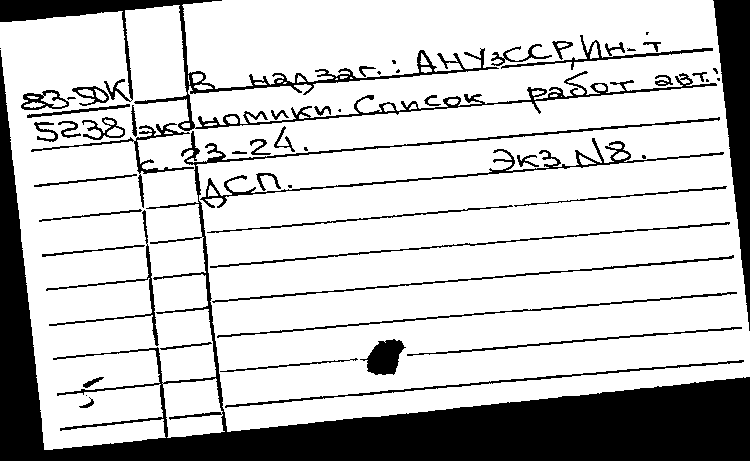 83-50К В надзаг.: АНУзССР, Ин-т
5238 экономики. Список работ авт.:
с. 23-24.
ДСП. Экз. N8.
5